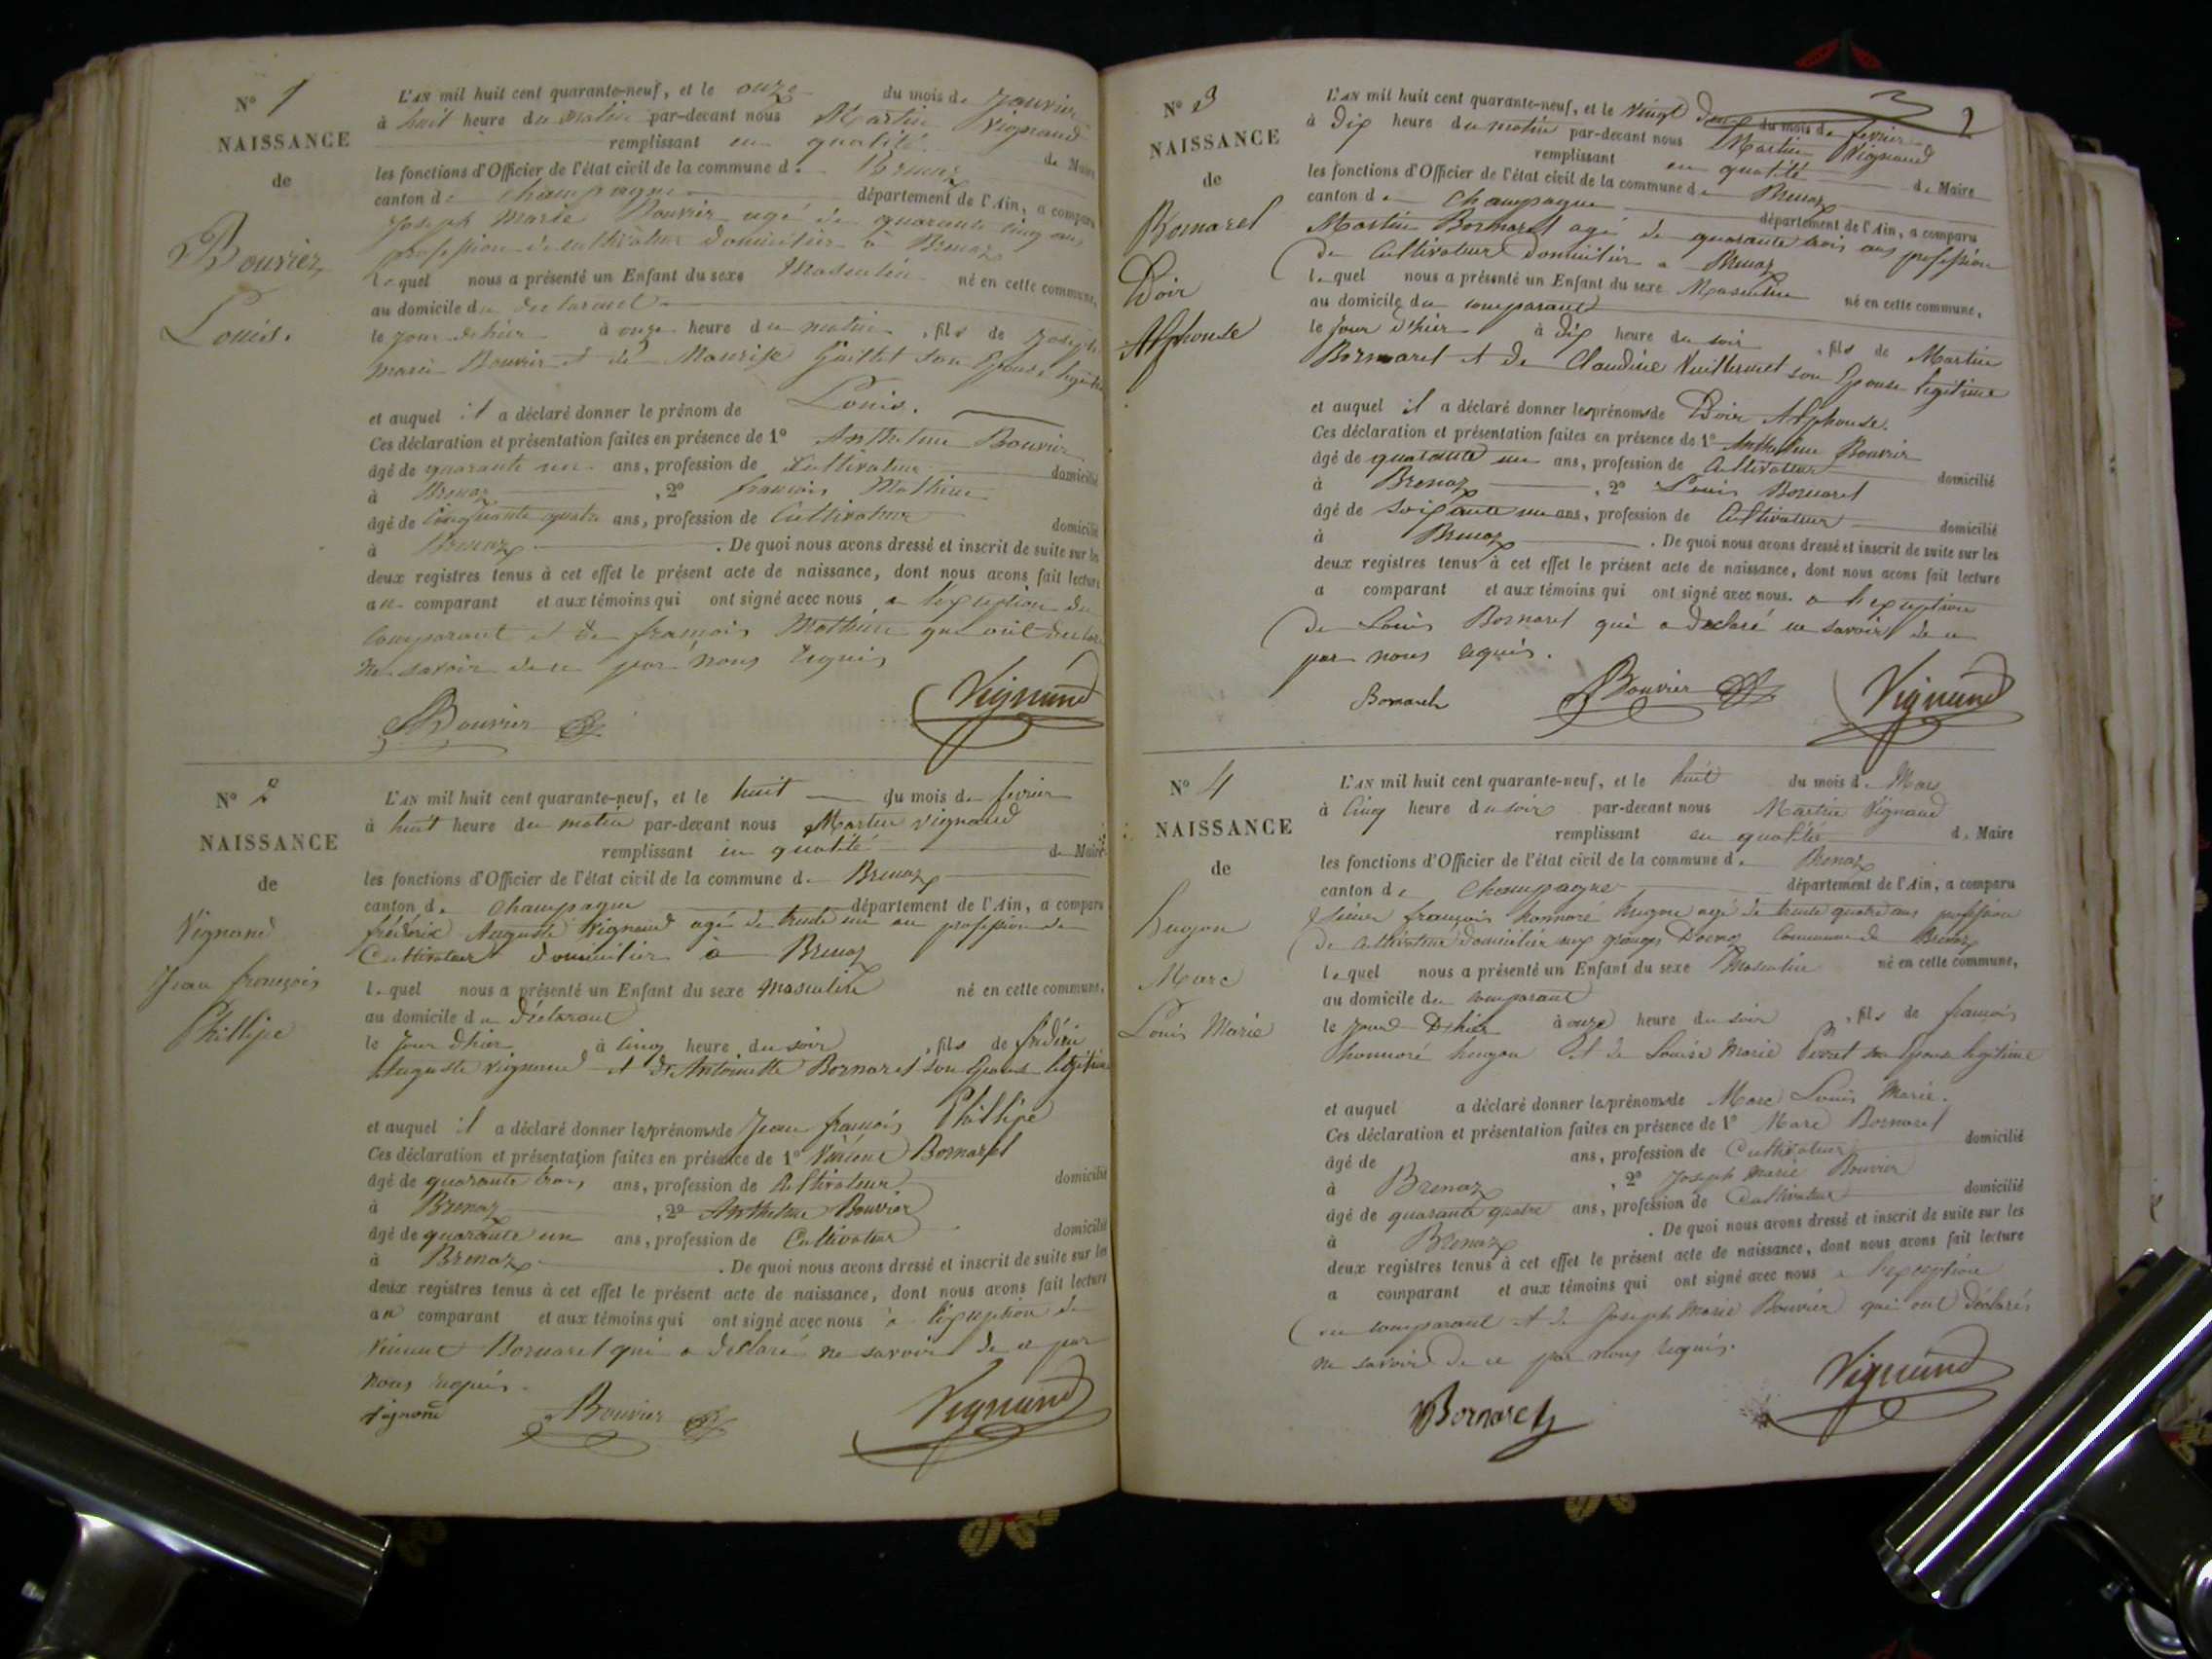 N° 1
NAISSANCE
de
Bouvier
Louis.
L'AN mil huit cent quarante-neuf, et le onze du mois de Janvier
à huit heure du matin par-devant nous Martin Vignaud
remplissant en qualité de Maire
les fonctions d'Officier de l'état civil de la commune de Brenaz
canton de Champagne département de l'Ain, a comparu
Joseph Marie Bouvier agé de quarante cinq ans
profession de cultivateur domicilier à Brenaz
lequel nous a présenté un Enfant du sexe Masculin né en cette commune,
au domicile du declarant
le jour dehier à onze heure du matin, fils de Joseph
marie Bouvier et de Maurise Guillet son Epouse legitime
et auquel il a déclaré donner le prénom de Louis.
Ces déclaration et présentation faites en présence de 1° Anthelme Bouvier
âgé de quarante un ans, profession de Cultivateur domicilié
à Brenaz, 2° francois Mathieu
âgé de Cinquante quatre ans, profession de Cultivateur domicilié
à Brenaz. De quoi nous avons dressé et inscrit de suite sur les
deux registres tenus à cet effet le présent acte de naissance, dont nous avons fait lecture
au comparant et aux témoins qui ont signé avec nous a lexception du
comparant et de francois Mathieu qui ont declaré
ne savoir de ce par nous requis
Bouvier Vignaud
N° 2
NAISSANCE
de
Vignaud
Jean françois
Phillipe
L'AN mil huit cent quarante-neuf, et le huit du mois de fevrier
à huit heure du matin par-devant nous Martin Vignaud
remplissant en qualité de Maire
les fonctions d'Officier de l'état civil de la commune de Brenaz
canton de Champagne département de l'Ain, a comparu
fréderic Auguste Vignaud agé de trente un an profession de
Cultivateur domicilier à Brenaz
lequel nous a présenté un Enfant du sexe masculin né en cette commune,
au domicile du déclarant
le jour dhier à cinq heure du soir, fils de frédéric
Auguste Vignaud et de Antoinette Bornarel son Epouse legitime
et auquel il a déclaré donner les prénoms de Jean francois Phillipe
Ces déclaration et présentation faites en présence de 1° Vincent Bornarel
âgé de quarante trois ans, profession de Cultivateur domicilié
à Brenaz, 2° Anthelme Bouvier
âgé de quarante un ans, profession de Cultivateur domicilié
à Brenaz. De quoi nous avons dressé et inscrit de suite sur les
deux registres tenus à cet effet le présent acte de naissance, dont nous avons fait lecture
au comparant et aux témoins qui ont signé avec nous à lexception de
Vincent Bornarel qui a declaré ne savoir de ce par
nous requis.
Vignaud Bouvier Vignaud
2
N° 3
NAISSANCE
de
Bornarel
Alphonse
L'AN mil huit cent quarante-neuf, et le vingt deux du mois de fevrier
à dix heure du matin par-devant nous Martin Vignaud
remplissant en qualité de Maire
les fonctions d'Officier de l'état civil de la commune de Brenaz
canton de Champagne département de l'Ain, a comparu
Martin Bornarel agé de quarante trois ans profession
de Cultivateur domicilier a Brenaz
lequel nous a présenté un Enfant du sexe Masculin né en cette commune,
au domicile du comparant
le jour d'hier à dix heure du soir, fils de Martin
Bornarel et de Claudine Vuillermet son Epouse legitime
et auquel il a déclaré donner les prénoms de Alphonse.
Ces déclaration et présentation faites en présence de 1° Anthelme Bouvier
âgé de quarante un ans, profession de Cultivateur domicilié
à Brenaz, 2° Louis Bornarel
âgé de soixante un ans, profession de Cultivateur domicilié
à Brenaz. De quoi nous avons dressé et inscrit de suite sur les
deux registres tenus à cet effet le présent acte de naissance, dont nous avons fait lecture
a comparant et aux témoins qui ont signé avec nous. a lexception
de Louis Bornarel qui a declaré ne savoir de ce
par nous requis.
Bornarel Bouvier Vignaud
N° 4
NAISSANCE
de
hugon
Marc
Louis Marie
L'AN mil huit cent quarante-neuf, et le huit du mois de Mars
à Cinq heure du soir par-devant nous Martin Vignaud
remplissant en qualité de Maire
les fonctions d'Officier de l'état civil de la commune de Brenaz
canton de Champagne département de l'Ain, a comparu
françois honnoré hugon agé de trente quatre ans profession
de cultivateur domicilier aux granges Commune de Brenaz
lequel nous a présenté un Enfant du sexe Masculin né en cette commune,
au domicile du comparant
le jour Dhier à onze heure du soir, fils de francois
honnoré hugon et de Louise Marie son Epouse legitime
et auquel a déclaré donner les prénoms de Marc Louis Marie.
Ces déclaration et présentation faites en présence de 1° Marc Bornarel
âgé de ans, profession de Cultivateur domicilié
à Brenaz, 2° Joseph Marie Bouvier
âgé de quarante quatre ans, profession de Cultivateur domicilié
à Brenaz. De quoi nous avons dressé et inscrit de suite sur les
deux registres tenus à cet effet le présent acte de naissance, dont nous avons fait lecture
a comparant et aux témoins qui ont signé avec nous a lexception
du comparant et de Joseph Marie Bouvier qui ont déclarés
ne savoir de ce par nous requis.
Bornarel Vignaud